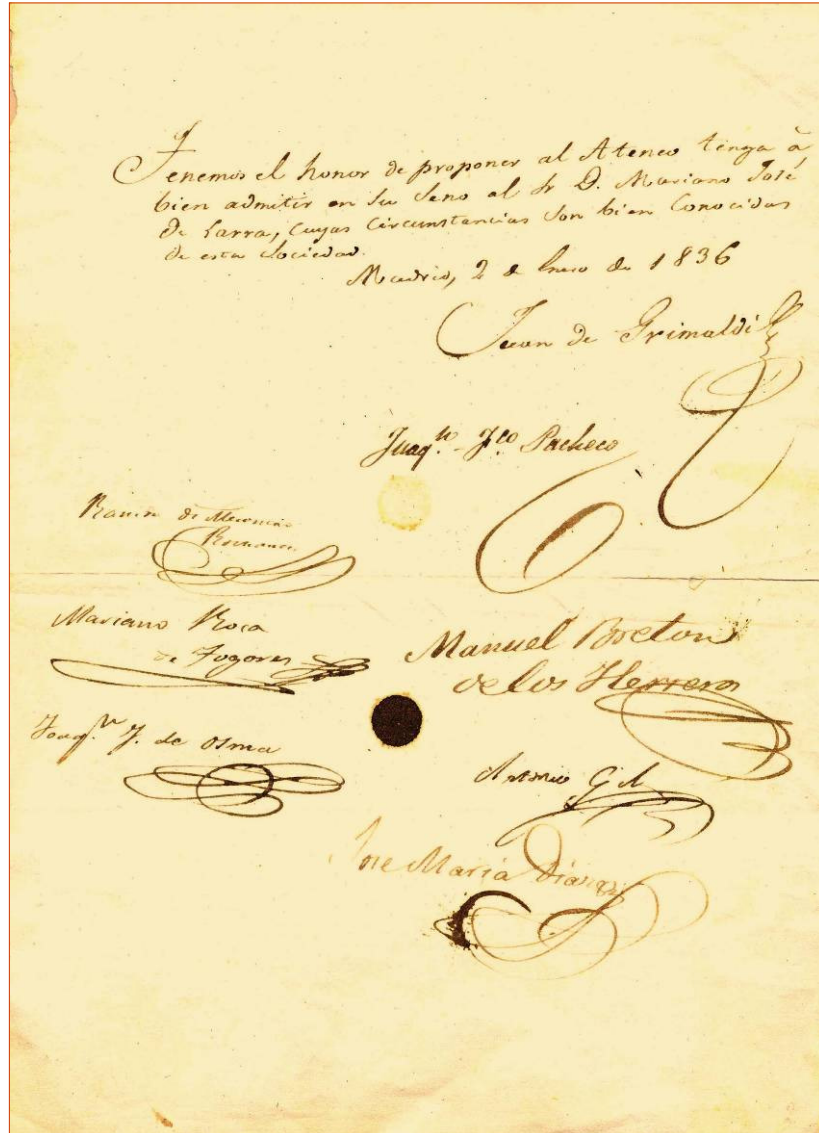 Tenemos el honor de proponer al Ateneo tenga á
bien admitir en su seno al Sr D. Mariano José
de Larra, cuyas circunstancias son bien conocidas
de esta sociedad.
Madrid, 2 de Enero de 1836
Juan de Grimaldi
Juaq.n Fco Pacheco
Ramon de Mesonero
Romanos
Mariano Roca
de Togores
Manuel Breton
de los Herreros
Joaq.n J. de Osma
Antonio Gil
Jose María Díaz